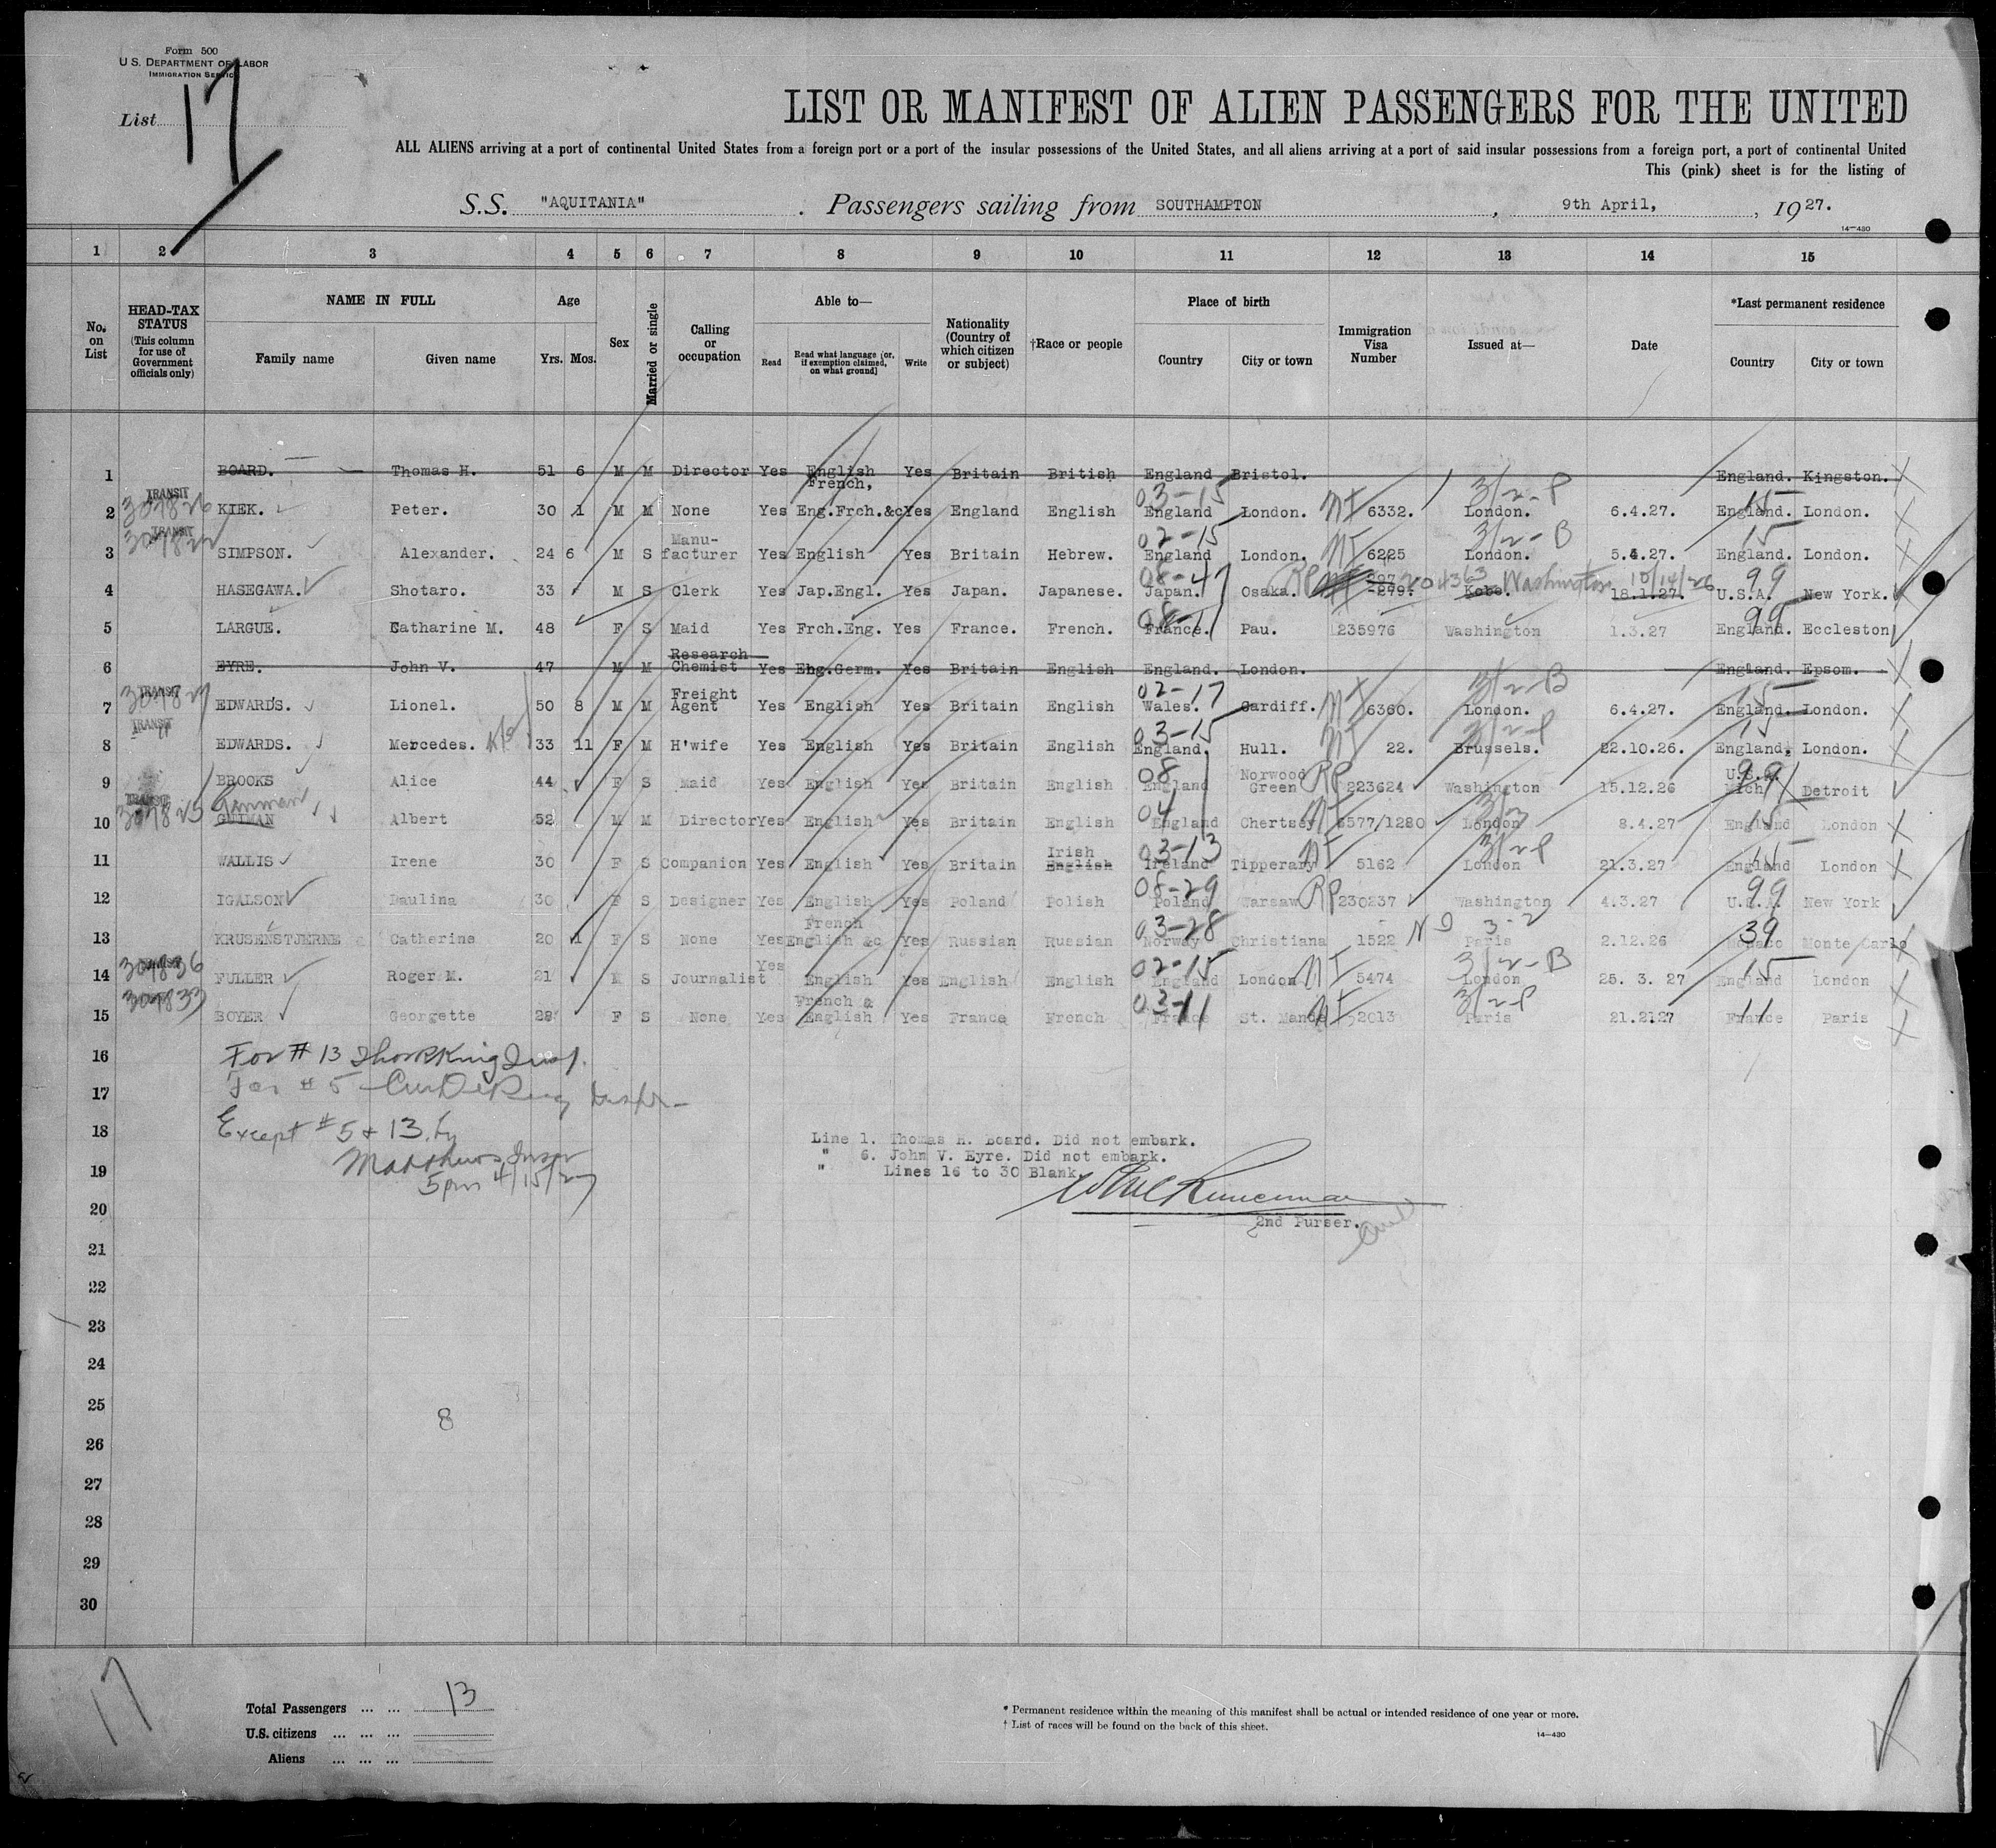 Form 500
U.S. DEPARTMENT OF LABOR
IMMIGRATION SERVICE
List 17
LIST OR MANIFEST OF ALIEN PASSENGERS FOR THE UNITED
ALL ALIENS arriving at a port of continental United States from a foreign port or a port of the insular possessions of the United States, and all aliens arriving at a port of said insular possessions from a foreign port, a port of continental United
This (pink) sheet is for the listing of
S.S. "AQUITANIA" . Passengers sailing from SOUTHAMPTON , 9th April, , 1927.
14—430
1 2 3 4 5 6 7 8 9 10 11 12 13 14 15
No. on List
HEAD-TAX STATUS (This column for use of Government officials only)
NAME IN FULL
Family name Given name
Age
Yrs. Mos.
Sex
Married or single
Calling or occupation
Able to—
Read Read what language (or, if exemption claimed, on what ground) Write
Nationality (Country of which citizen or subject)
†Race or people
Place of birth
Country City or town
Immigration Visa Number
Issued at—
Date
*Last permanent residence
Country City or town
1 BOARD. Thomas H. 51 6 M M Director Yes English Yes Britain British England Bristol. England. Kingston.
TRANSIT French, 03-15 3/2-P 15
2 304826 KIEK. Peter. 30 1 M M None Yes Eng.Frch.&c Yes England English England London. NI 6332. London. 6.4.27. England. London.
TRANSIT Manu- 02-15 3/2-B 15
3 SIMPSON. Alexander. 24 6 M S facturer Yes English Yes Britain Hebrew. England London. NI 6225 London. 5.4.27. England. London.
08-47 RP 204363 Washington 10/14/26 99
4 HASEGAWA. Shotaro. 33 M S Clerk Yes Jap.Engl. Yes Japan. Japanese. Japan. Osaka. 279. Kobe. 18.1.27. U.S.A. New York.
08-11 99
5 LARGUE. Catharine M. 48 F S Maid Yes Frch.Eng. Yes France. French. France. Pau. 235976 Washington 1.3.27 England. Eccleston
Research
6 EYRE. John V. 47 M M Chemist Yes Eng.Germ. Yes Britain English England. London. England. Epsom.
TRANSIT Freight 02-17 3/2-B 15
7 EDWARDS. Lionel. 50 8 M M Agent Yes English Yes Britain English Wales. Cardiff. NI 6360. London. 6.4.27. England. London.
TRANSIT 03-15 3/2-P 15
8 EDWARDS. Mercedes. 33 11 F M H'wife Yes English Yes Britain English England. Hull. NI 22. Brussels. 22.10.26. England. London.
08 Norwood RP U.S.A. 99
9 BROOKS Alice 44 F S Maid Yes English Yes Britain English England Green 223624 Washington 15.12.26 Mich. Detroit
TRANSIT 04 NI 3/3 15
10 GUIMAN Albert 52 M M Director Yes English Yes Britain English England Chertsey 6577/1280 London 8.4.27 England London
Irish 03-13 NI 3/2-P 15
11 WALLIS Irene 30 F S Companion Yes English Yes Britain English Ireland Tipperary 5162 London 21.3.27 England London
08-29 99
12 IGALSON Paulina 30 F S Designer Yes English Yes Poland Polish Poland Warsaw RP 230237 Washington 4.3.27 U.S.A. New York
French 03-28 3-2 39
13 KRUSENSTJERNE Catherine 20 1 F S None Yes English &c Yes Russian Russian Norway Christiana 1522 Paris 2.12.26 Monaco Monte Carlo
304836 Yes 02-15 3/2-B 15
14 FULLER Roger M. 21 M S Journalist English Yes English English England London NI 5474 London 25. 3. 27 England London
304833 French & 03-11 3/2-P 11
15 BOYER Georgette 28 F S None Yes English Yes France French France St. Mande NI 2013 Paris 21.2127 France Paris
16 For # 13
17 For # 5
18 Except #5 & 13. by
Line 1. Thomas H. Board. Did not embark.
" 6. John V. Eyre. Did not embark.
19 Matthews Inspr
" Lines 16 to 30 Blank.
5pm 4/15/27
20
2nd Purser.
21
22
23
24
25
8
26
27
28
29
30
17
Total Passengers ... ... 13
U.S. citizens ... ... ...
Aliens ... ... ...
* Permanent residence within the meaning of this manifest shall be actual or intended residence of one year or more.
† List of races will be found on the back of this sheet.
14—430